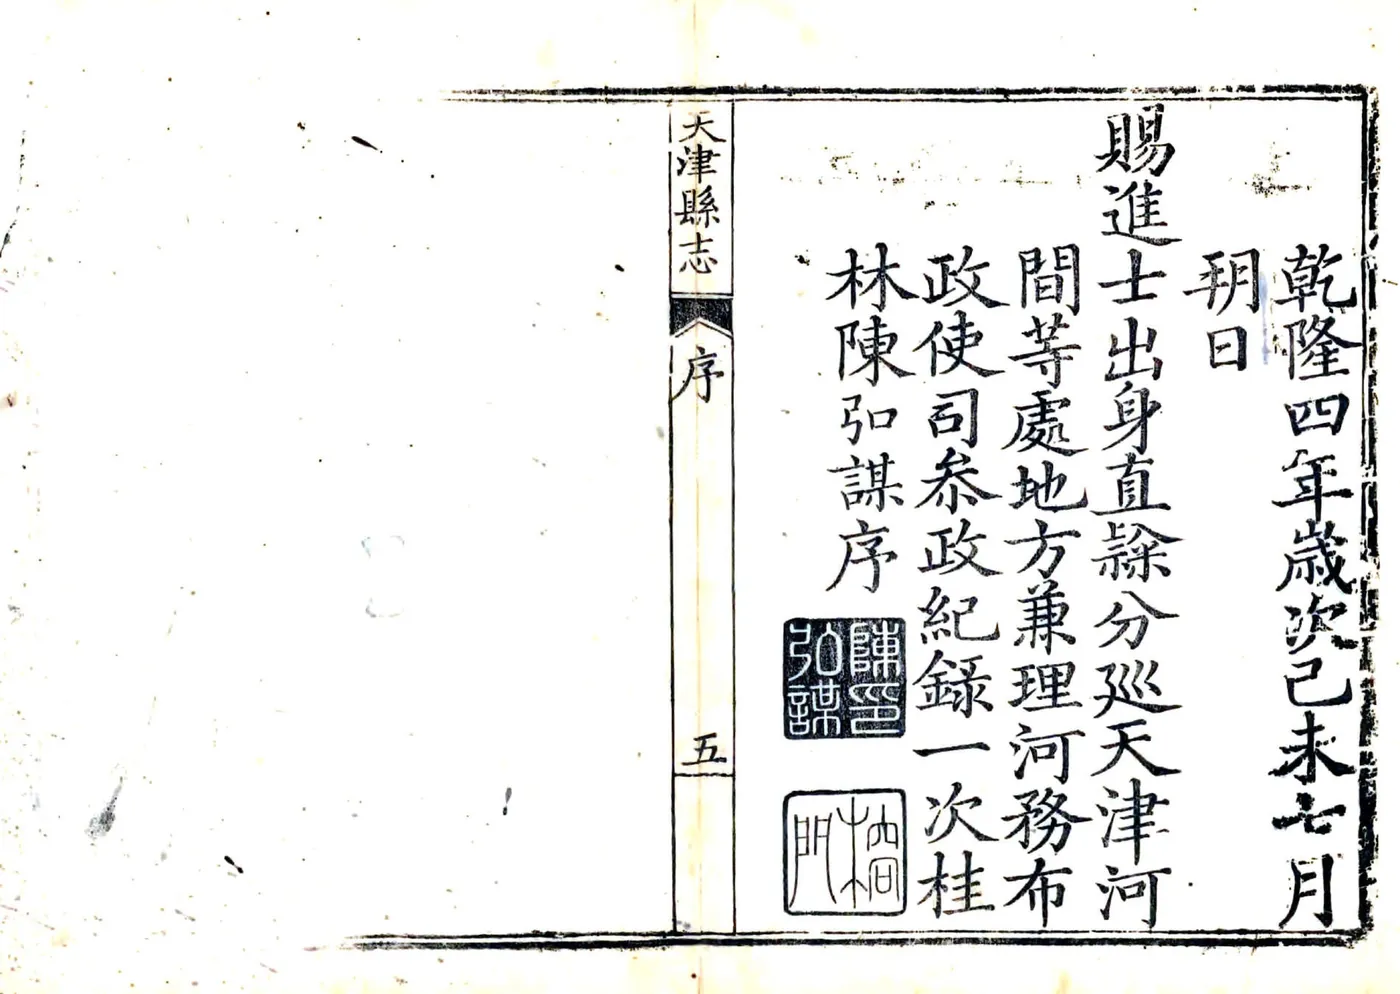 乾隆四年歲次己未七月
朔日
賜進士出身直隸分巡天津河
間等處地方兼理河務布
政使司叅政紀錄一次桂
林陳弘謀序
陳印
弘謀
榕
門
天津縣志
序
五